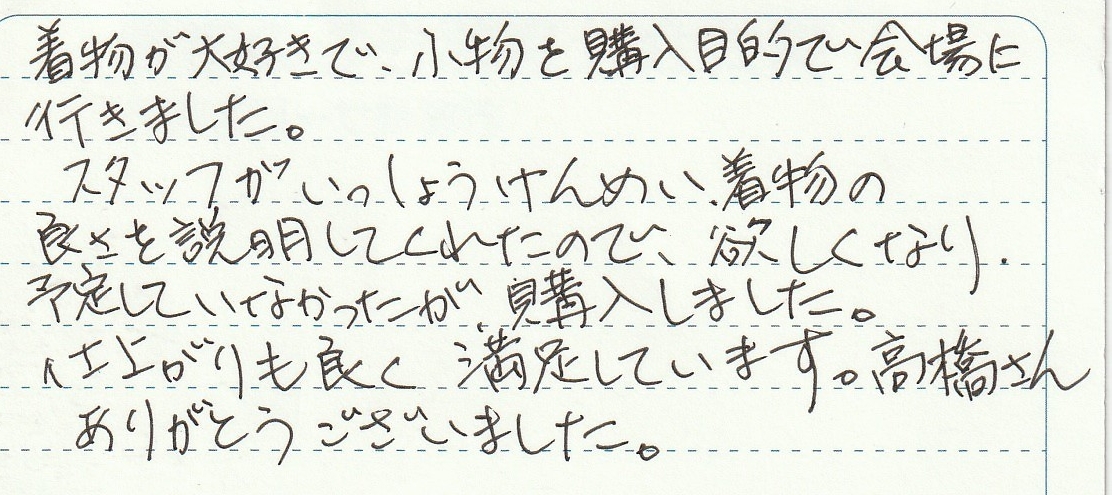 着物が大好きで、小物を購入目的で会場に
行きました。
スタッフがいっしょうけんめい、着物の
良さを説明してくれたので、欲しくなり、
予定していなかったが、購入しました。
仕上がりも良く満足しています。高橋さん
ありがとうございました。